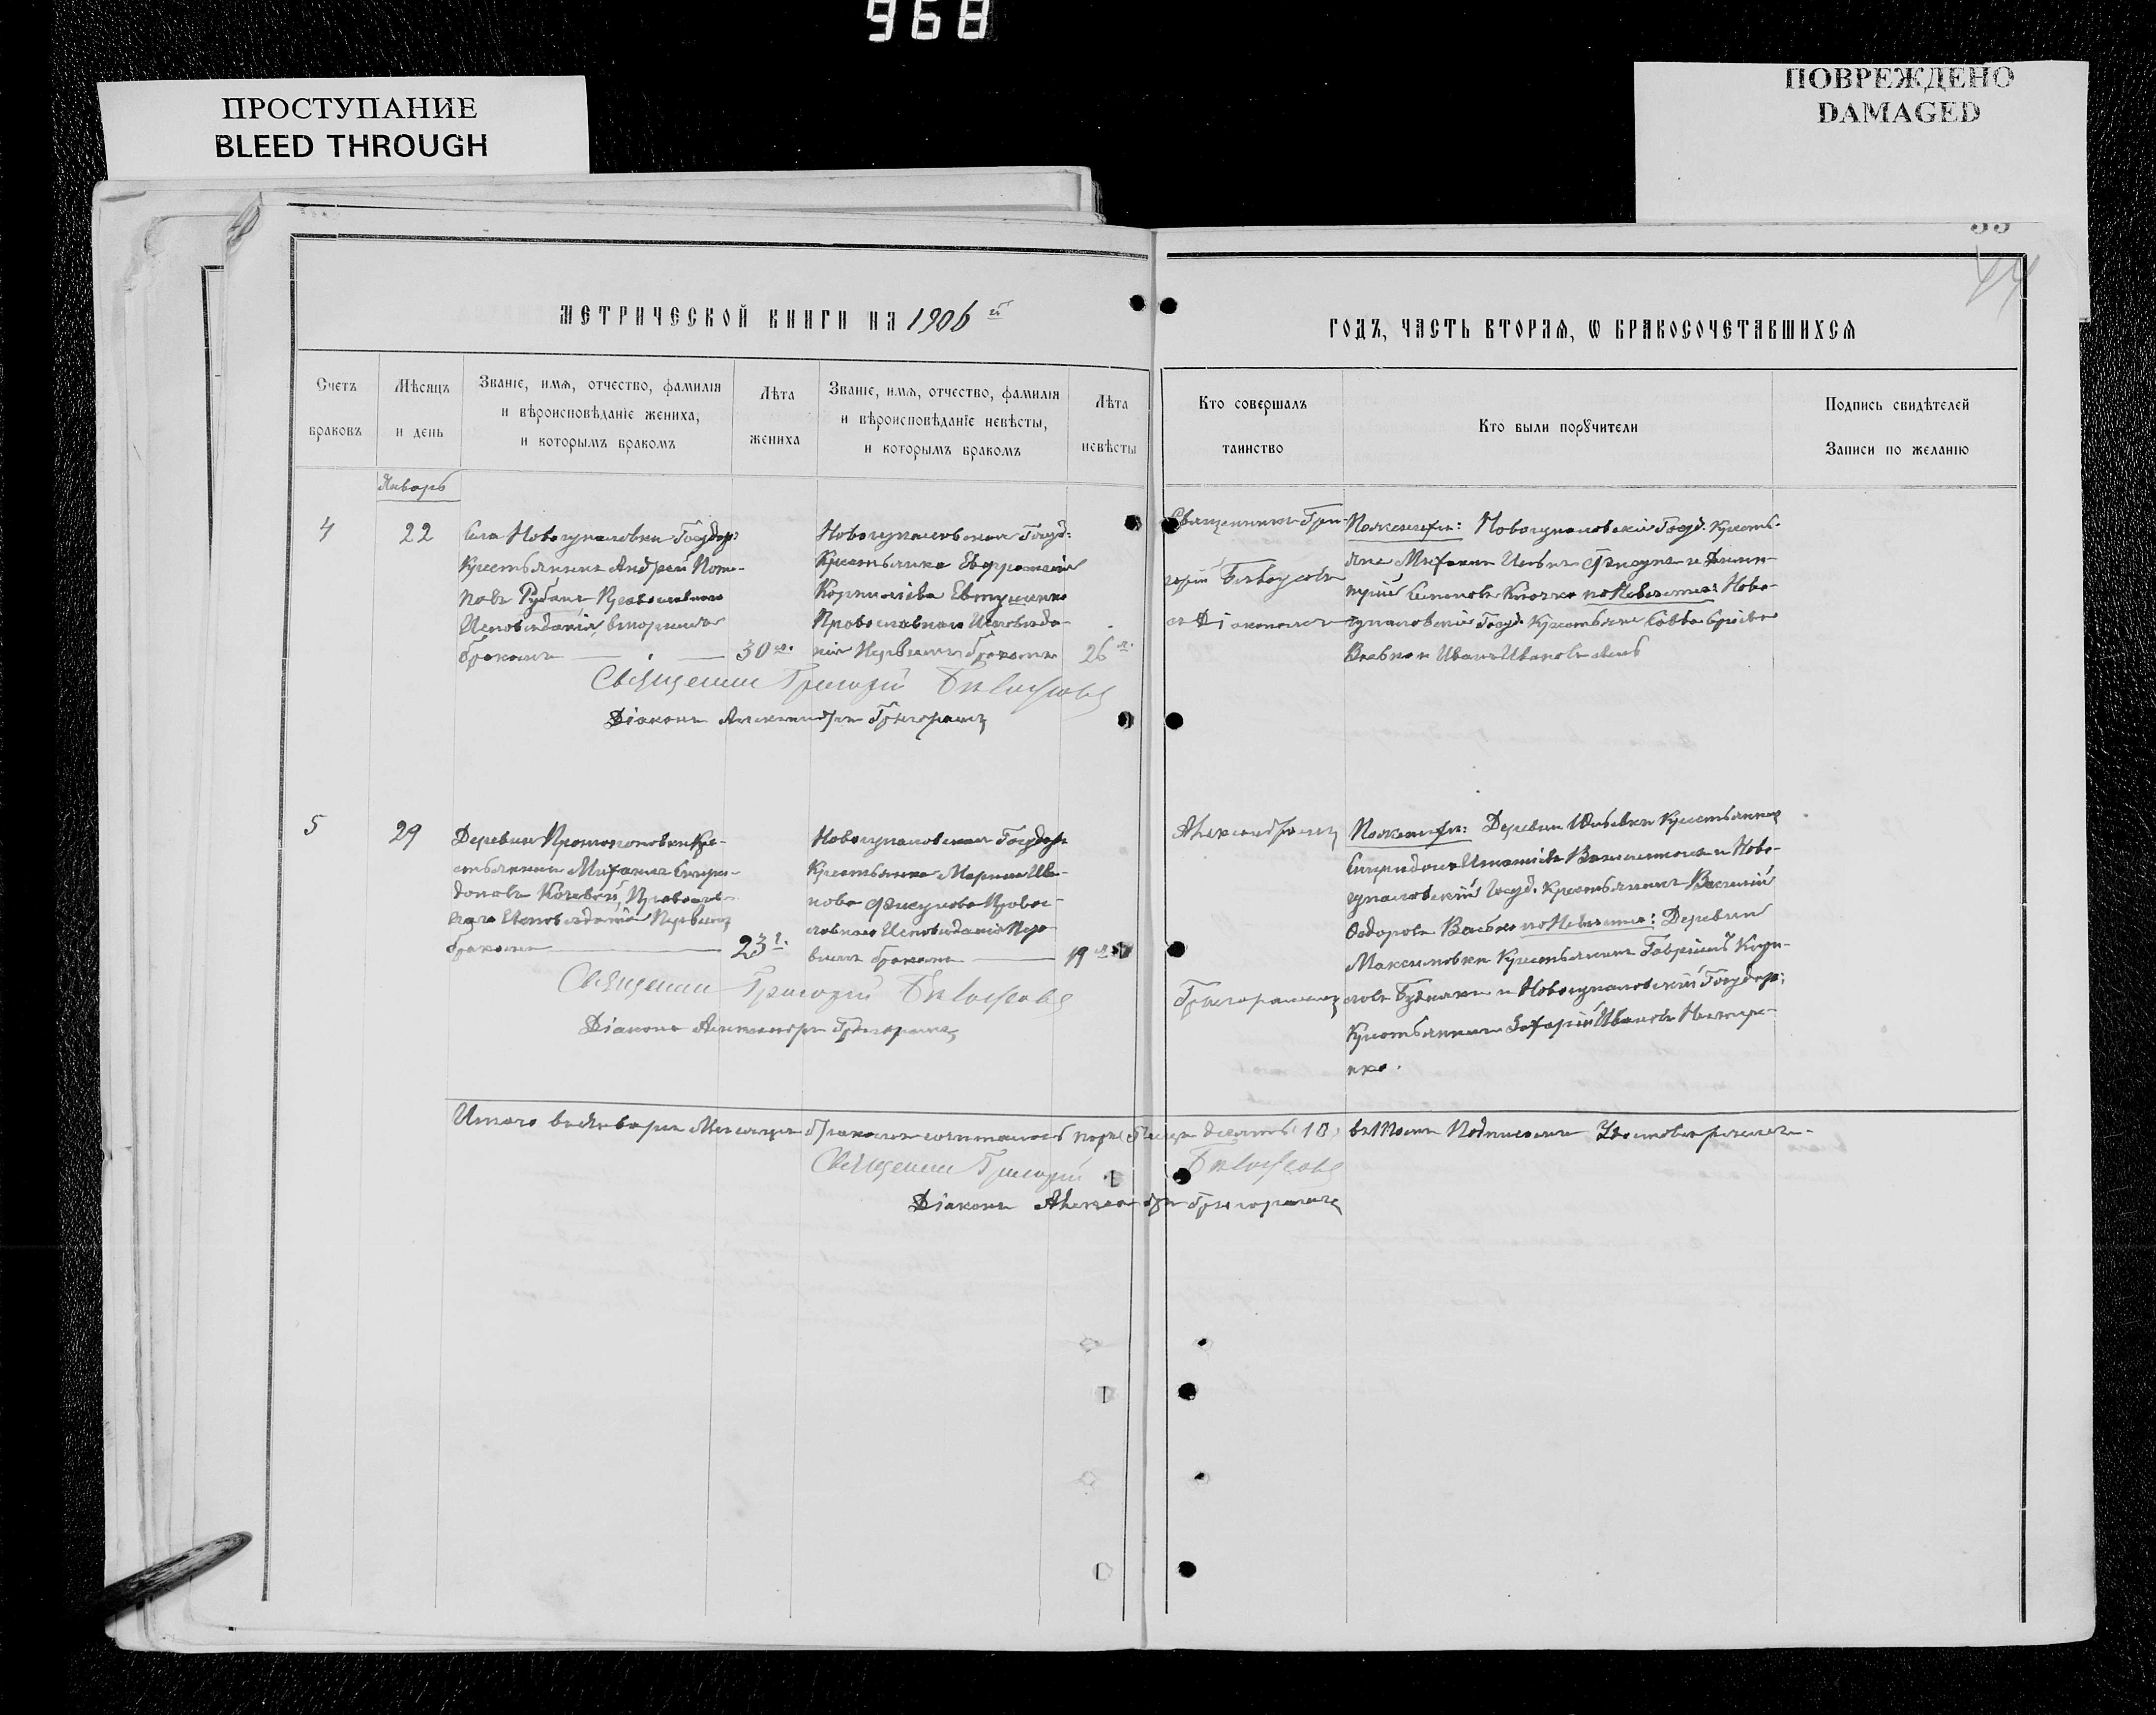 968
ПРОСТУПАНИЕ
BLEED THROUGH
ПОВРЕЖДЕНО
DAMAGED
МЕТРИЧЕСКОЙ КНИГИ НА 1906 й
ГОДЪ, ЧАСТЬ ВТОРАЯ, Ѡ БРАКОСОЧЕТАВШИХСЯ
Счетъ браковъ
Мѣсяцъ и день
Званіе, имя, отчество, фамилія
и вѣроисповѣданіе жениха,
и которымъ бракомъ
Лѣта жениха
Званіе, имя, отчество, фамилія
и вѣроисповѣданіе невѣсты,
и которымъ бракомъ
Лѣта невѣсты
Кто совершалъ таинство
Кто были порꙋчители
Подпись свидѣтелей
Записи по желанію
Январь
4
22
Села Новогупаловки Государ:
Крестьянинъ Андрей Пота-
повъ Рубанъ Православнаго
Исповѣданія, вторымъ
бракомъ
30 л.
Новогупаловская Госуд:
Крестьянка Евфросинія
Корниліева Евтушенко
Православнаго Исповѣда-
нія Первымъ бракомъ
26 л.
Священникъ Гри-
горій Бѣлоусовъ
съ Діакономъ
По женихѣ: Новогупаловскіе Госуд. Кресть-
яне Михаилъ Фисунъ и Дими-
трій Клочко по Невѣстѣ: Ново-
гупаловскіе Госуд. Крестьяне Савва
и Иванъ Ивановъ
Священник Григорій Бѣлоусовъ
Діаконъ Александръ Григорашъ
5
29
Деревни Кре-
стьянинъ Михаилъ Спири-
доновъ Кочевой, Православ-
наго Исповѣданія Первымъ
бракомъ
23 л.
Новогупаловская Государ.
Крестьянка Марина Ива-
нова Фисунова Правос-
лавнаго Исповѣданія Пер-
вымъ бракомъ
19 л.
Александромъ
Григорашемъ
По женихѣ: Деревни Крестьянинъ
Спиридонъ и Ново-
гупаловскій Госуд. Крестьянинъ Василій
Федоровъ по Невѣстѣ: Деревни
Максимовки Крестьянинъ Гавріилъ
и Новогупаловскій Государ:
Крестьянинъ Захарій Ивановъ
Священник Григорій Бѣлоусовъ
Діаконъ Александръ Григорашъ
Итого въ Январѣ Мѣсяцѣ браковъ десять (10) въ томъ Подписомъ
Священник Григорій Бѣлоусовъ
Діаконъ Александръ Григорашъ